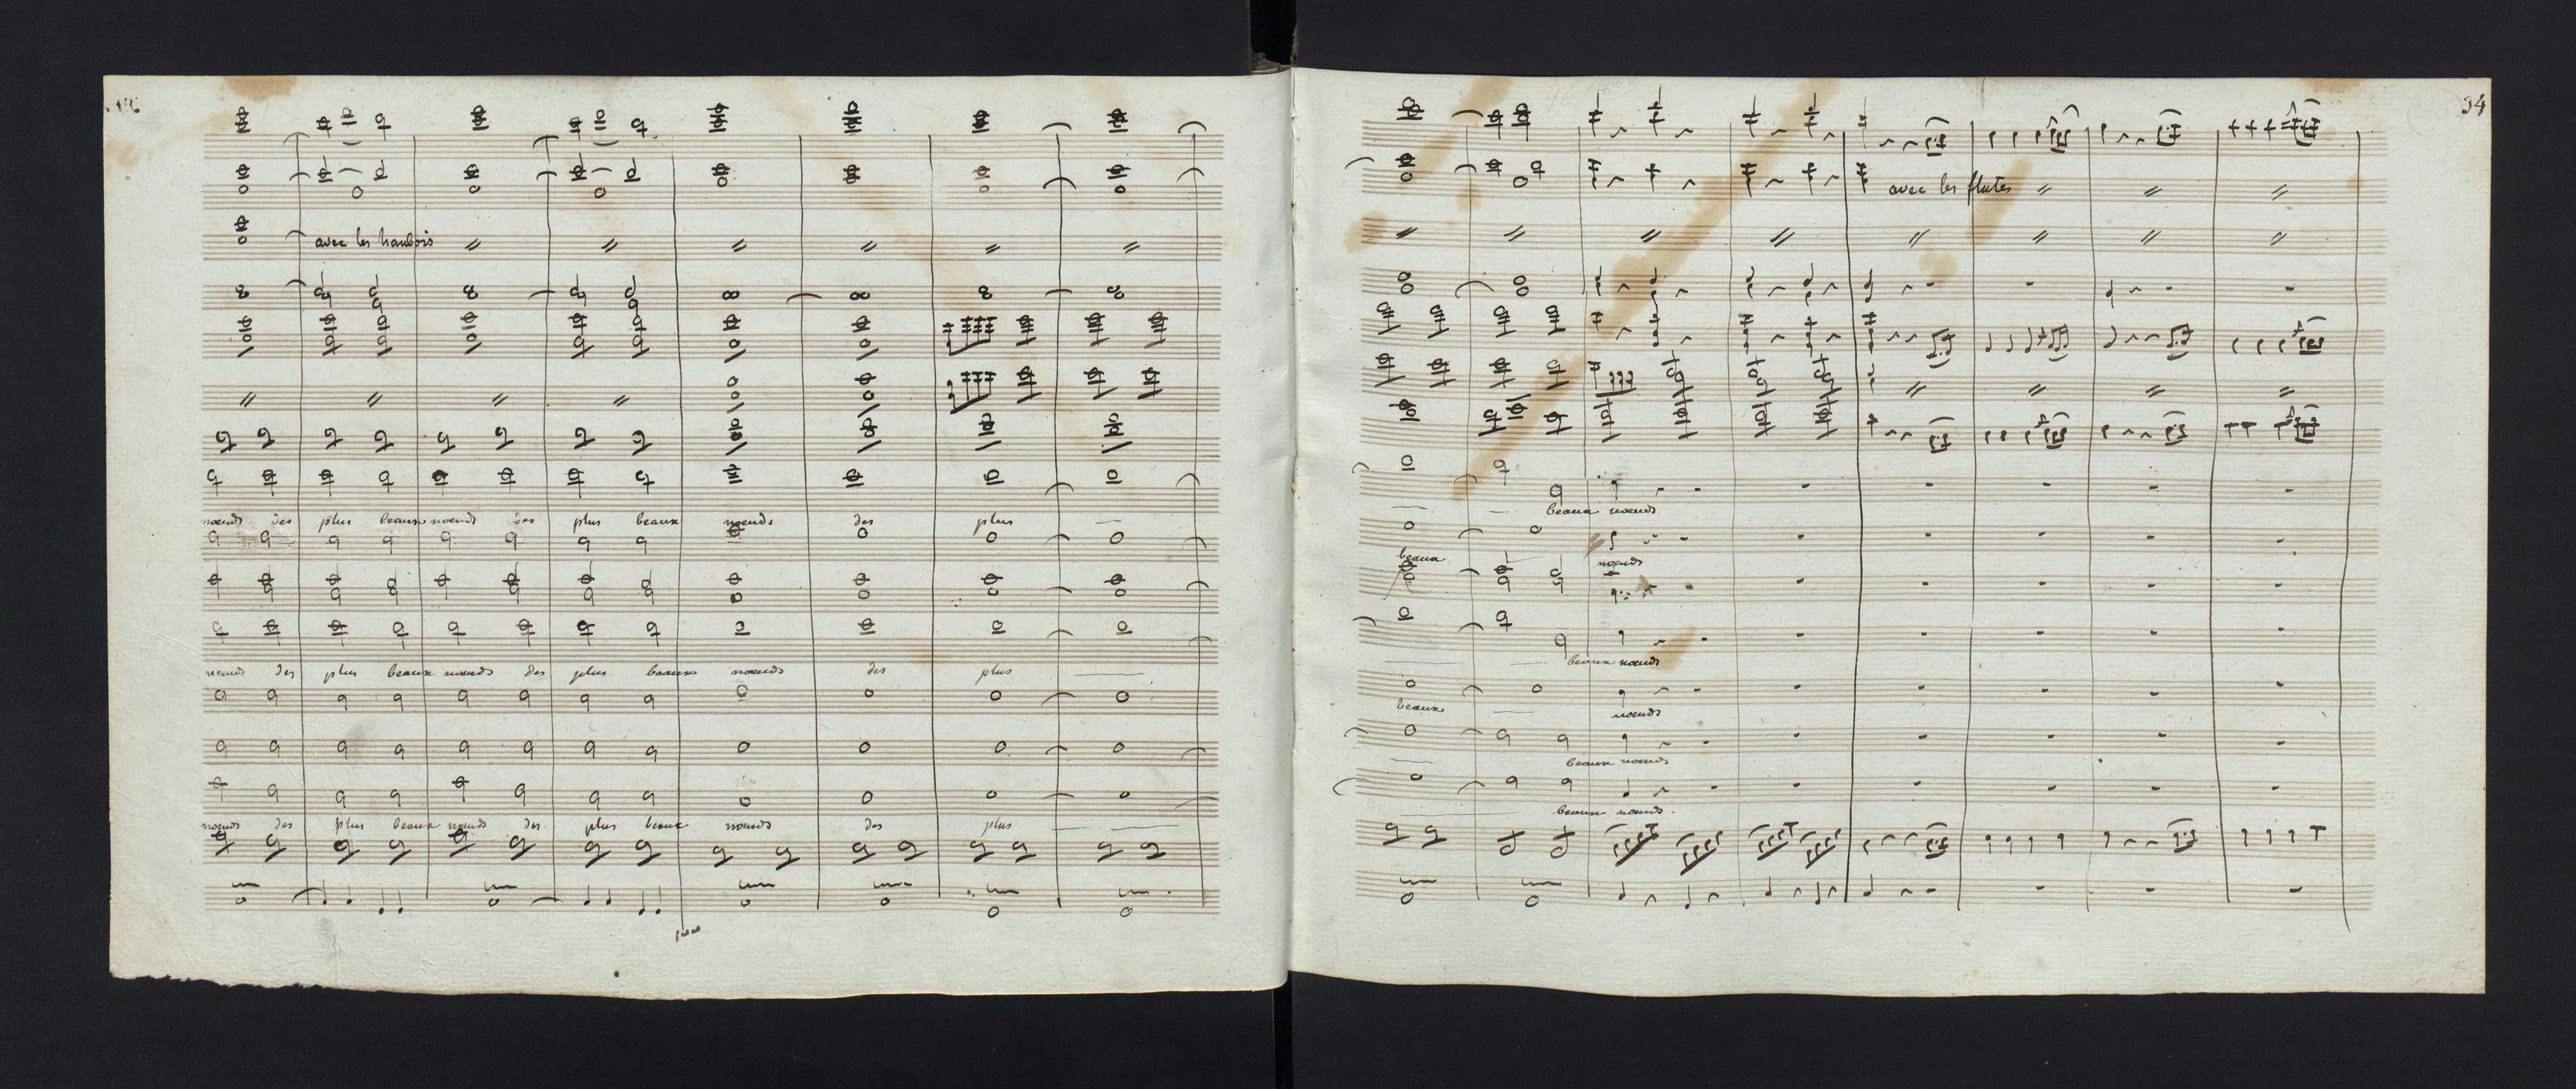 avec les haubois
noeuds des plus beaux noeuds des plus beaux noeuds des plus
noeuds des plus beaux noeuds des plus beaux noeuds des plus
noeuds des plus beaux noeuds des plus beaux noeuds des plus
34
avec les flutes
beaux noeuds
beaux noeuds
beaux noeuds
beaux noeuds
beaux noeuds
beaux noeuds.